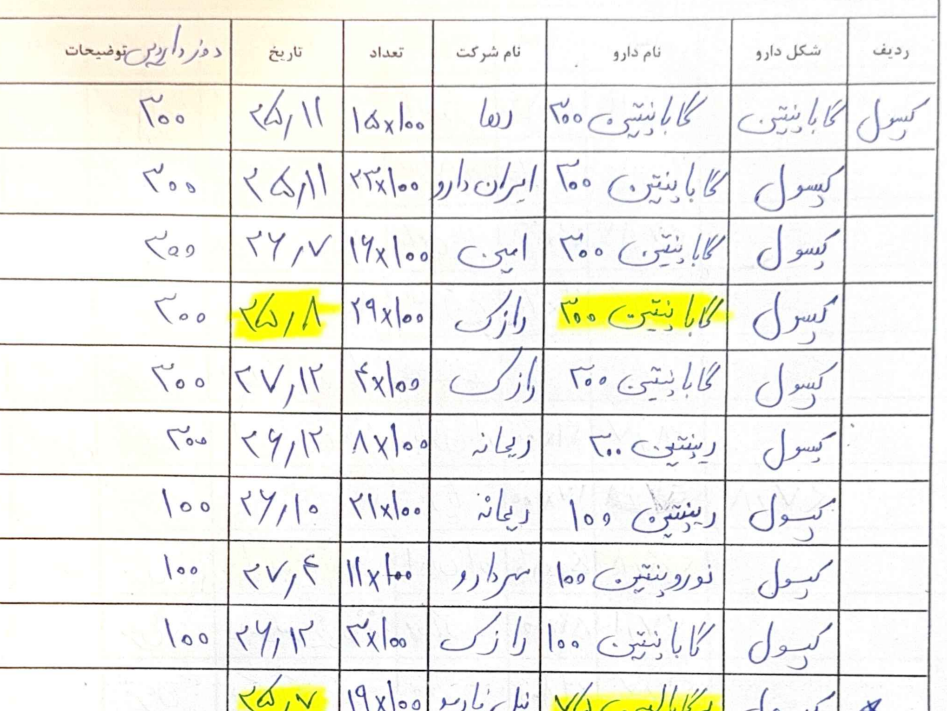 ردیف شکل دارو نام دارو نام شرکت تعداد تاریخ دوز دارویی توضیحات
کپسول گاباپنتین گاباپنتین ۳۰۰ رها ۱۵×۱۰۰ ۲۵٫۱۱ ۳۰۰
کپسول گاباپنتین ۳۰۰ ایران دارو ۲۳×۱۰۰ ۲۵٫۱۱ ۳۰۰
کپسول گاباپنتین ۳۰۰ امین ۱۶×۱۰۰ ۲۶٫۷ ۳۰۰
کپسول گاباپنتین ۳۰۰ رازک ۲۹×۱۰۰ ۲۵٫۸ ۳۰۰
کپسول گاباپنتین ۳۰۰ رازک ۴×۱۰۰ ۲۷٫۱۲ ۳۰۰
کپسول رینتین ۳۰۰ ریحانه ۸×۱۰۰ ۲۶٫۱۲ ۳۰۰
کپسول رینتین ۱۰۰ ریحانه ۲۱×۱۰۰ ۲۶٫۱۰ ۱۰۰
کپسول نوروپنتین ۱۰۰ مهردارو ۱۱×۱۰۰ ۲۷٫۴ ۱۰۰
کپسول گاباپنتین ۱۰۰ رازک ۳×۱۰۰ ۲۶٫۱۲ ۱۰۰
کپسول ۱۹×۱۰۰ ۲۵٫۷